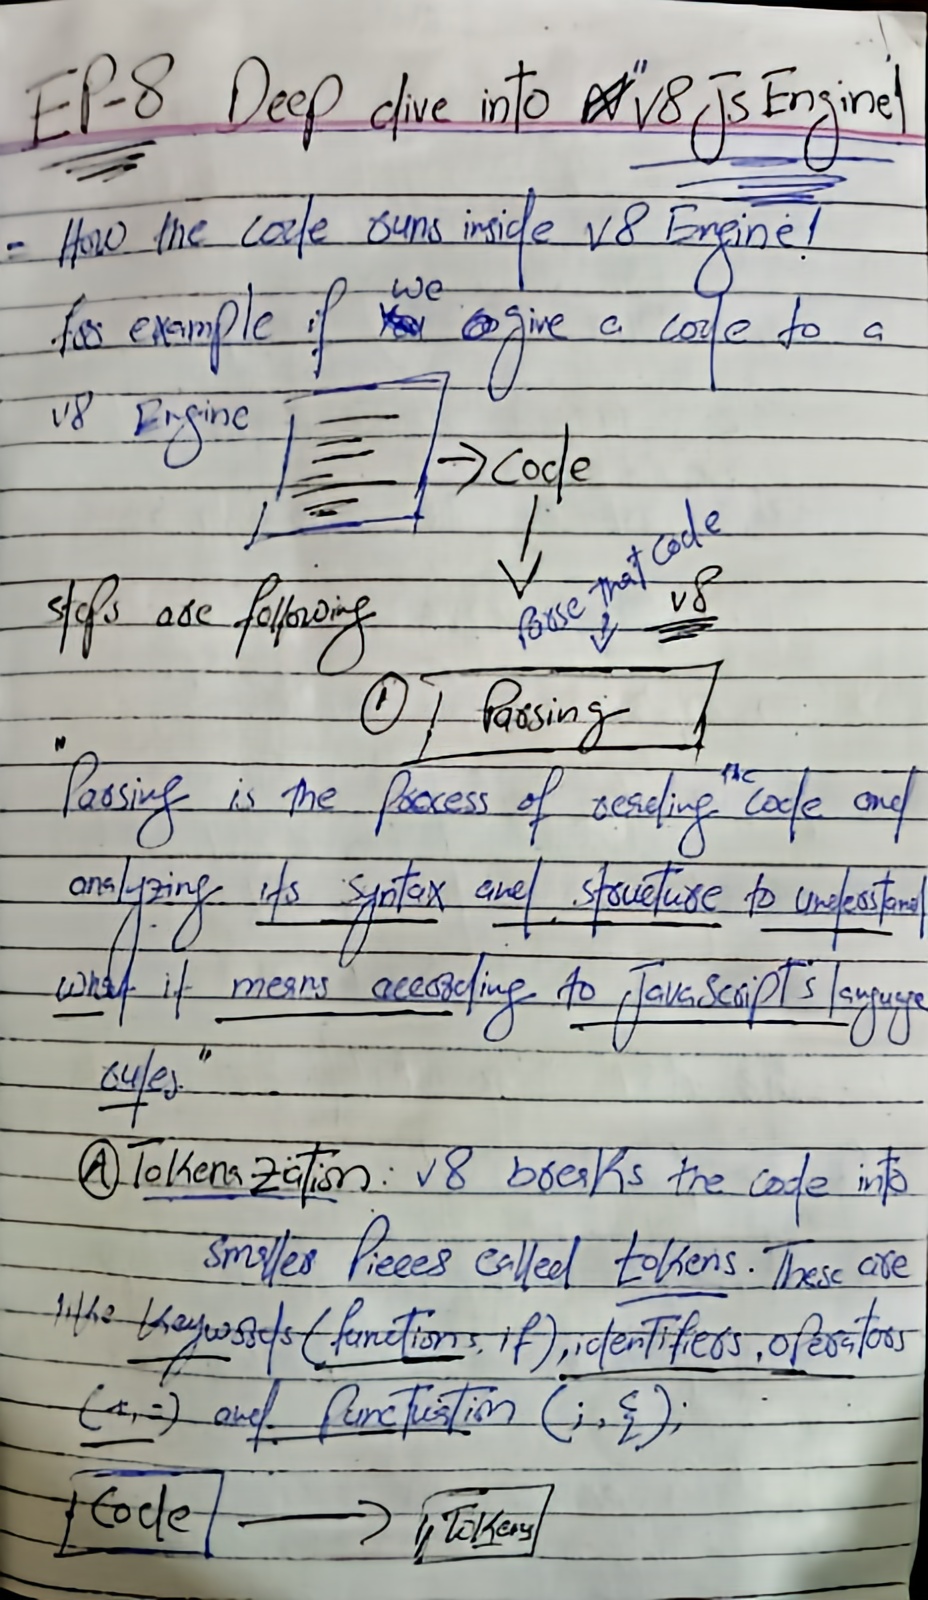 EP-8 Deep dive into "v8 Js Engine!
= How the code runs inside v8 Engine!
we
for example if give a code to a
v8 Engine
→ Code
Parse that code
v8
steps are following
① Parsing
"Parsing is the Process of reading the code and
analyzing its syntax and structure to understand
what it means according to JavaScript's language
rules."
Ⓐ Tokenazation: v8 breaks the code into
smaller Pieces called tokens. These are
like keywords (functions, if), identifiers, operators
(+, =) and Punctuation (;, {);
Code → Tokens